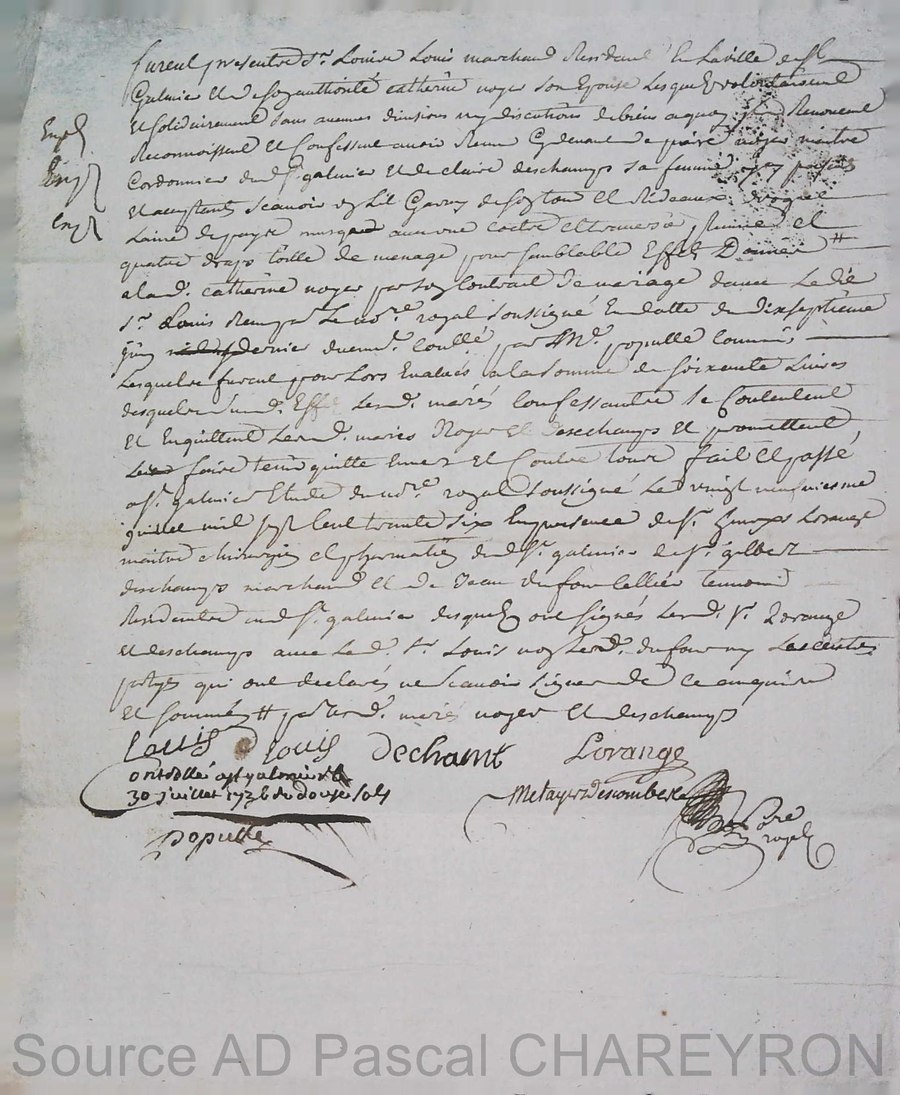 furent presentre Sr. Louis Louis marchand Resident En Laville de St
Galmier Et de soy authorité catherine noyer son Epouse Lesquels volontairement
Et solidairement sans aucunes divisions ny discutions de biens aquoy Renoncent
Reconnoissent Et Confessent avoir Receu Cydevant de pierre noyer maitre
Cordonnier dud. St. galmier Et de claire deschamps sa femme
Et acceptants scavoir un Lit Garny de Et Rideaux
Laine de payis avec une
quatre draps toille de menage pour semblable Effet Donner #
alad. catherine noyer par son Contrait de mariage avec Le dit
Sr. Louis Receu par Le nore. royal soussigné En datte du dixseptieme
juin dernier duemt. Conllé par Mr. populle Commis
Lesquels furent pour Lors Evalués a la somme de soixente Livres
desquels Effets Lesd. mariés Confessants se Contentent
Et Enquittent Lesd. mariés Noyer Et deschamps Et promettent
faire tenir quitte Envers Et Contre tous fait Et passé
a St. galmier Etude du nore. royal soussigné Le vingt neufviesme
juillet mil sept Cent trente six En presence de Sr. Lorange
maitre chirurgien Et pharmatien dud. St. galmier de Sr. gilbert
deschamps marchand Et de Jean dufour sellier temoins
Residentre aud. St. galmier desquels ont signés Lesd. Sr. Lorange
Et deschamps avec Led. Sr. Louis non Led. dufour ny Les autres
partyes qui ont declarés ne scavoir signer de ce enquise
Et sommés # par Lesd. mariés noyer Et deschamps
Louis Louis Dechamt Lorange
Controllé a St galmier Le
30 juillet 1736 Reçu douse sols
Metayer Descombes
Nore
royal
Populle
Source AD Pascal CHAREYRON